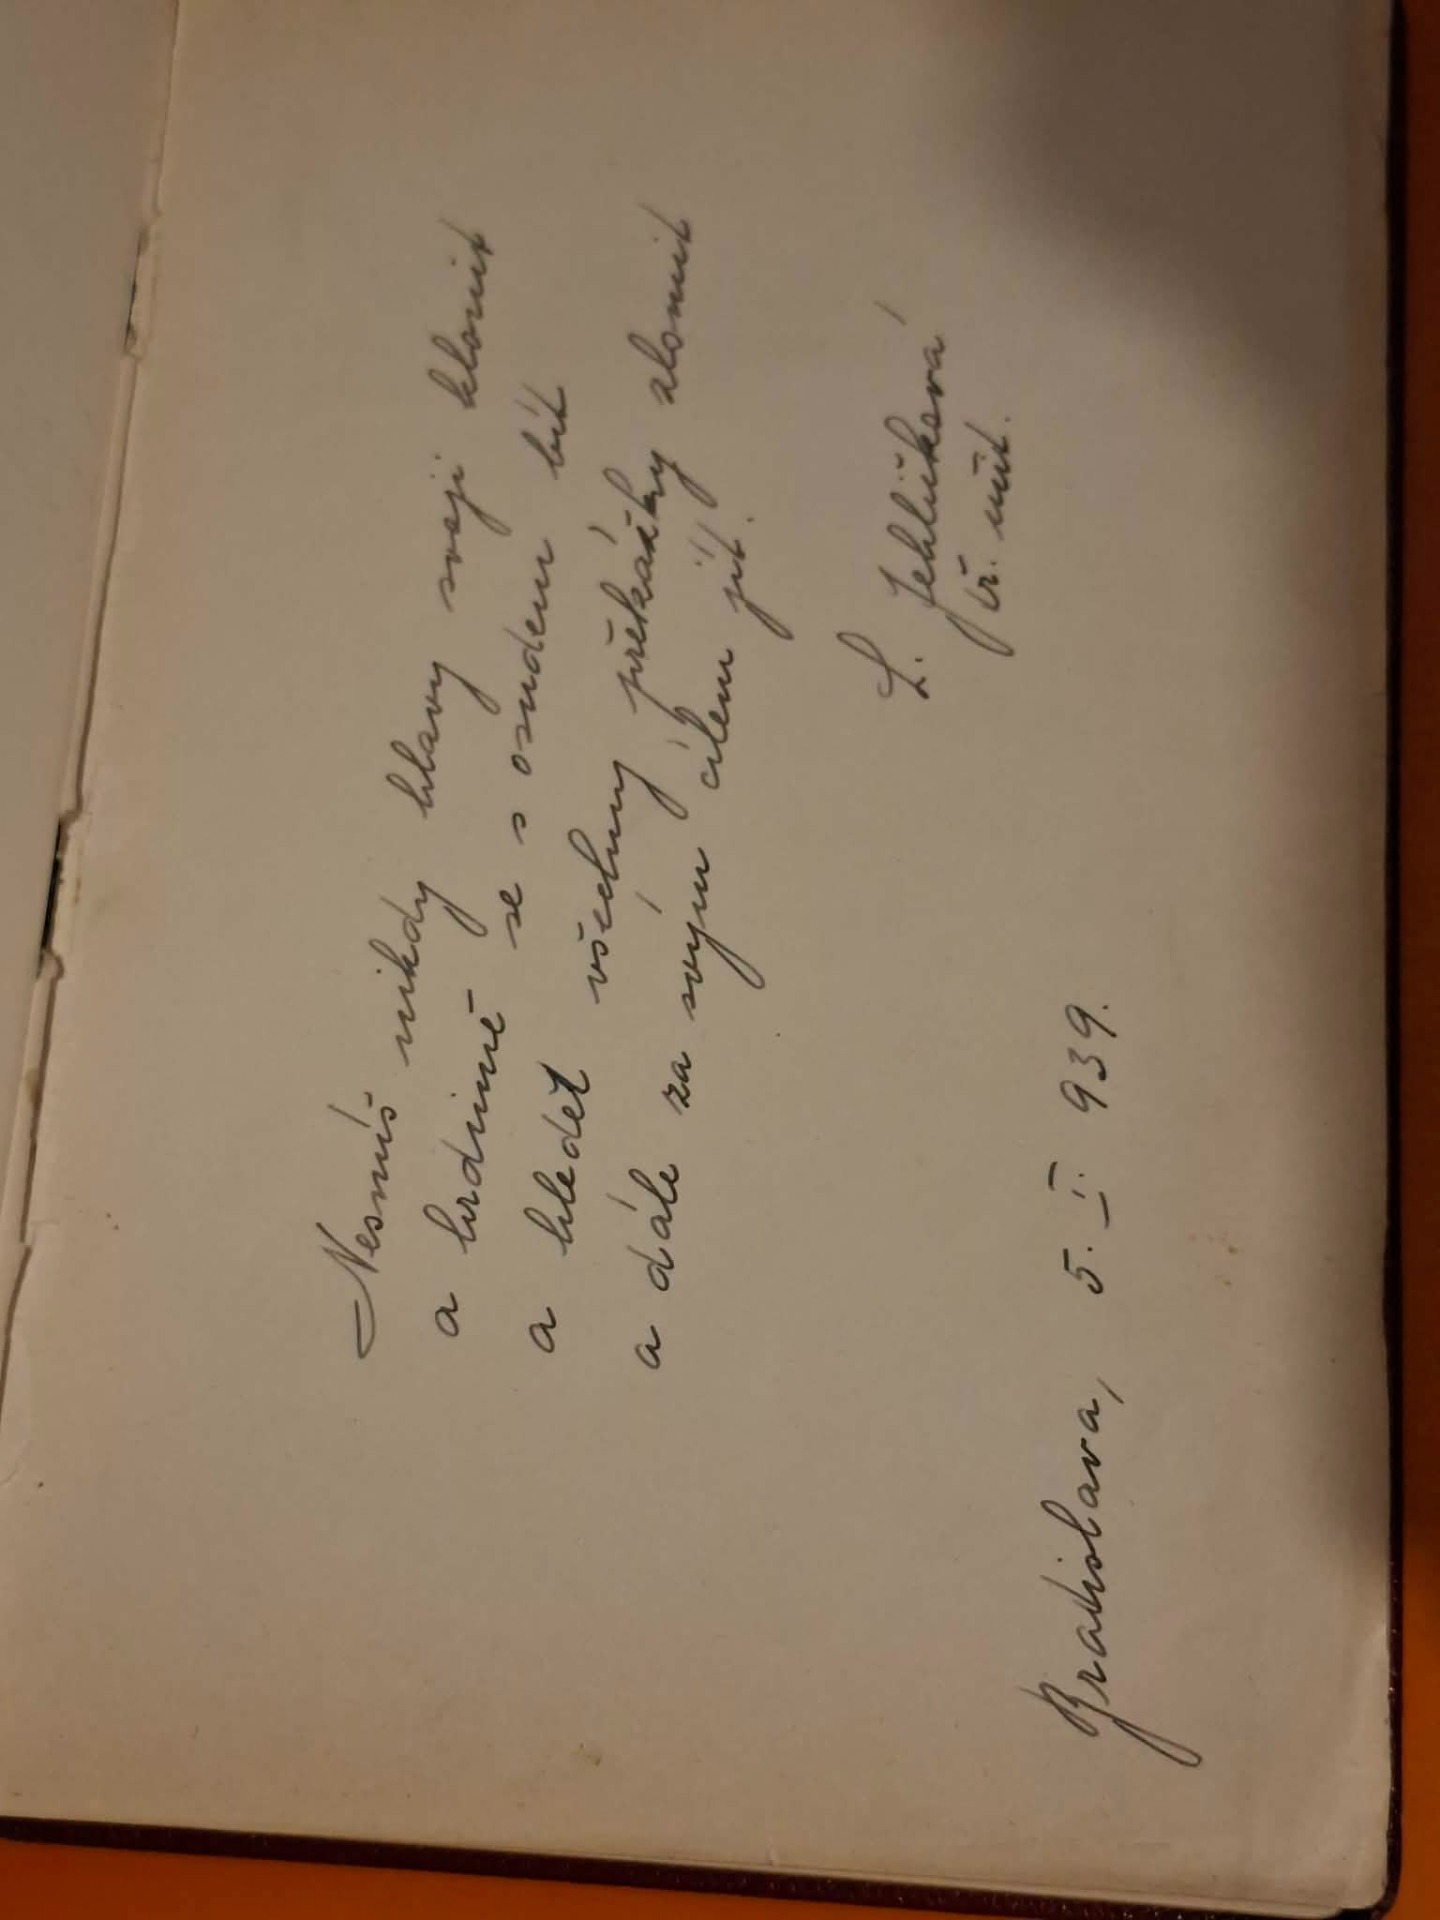 Nesmíš nikdy hlavy svoji klonit
a hrdinně se s osudem bít
a hledět všechny překážky zlomit
a dále za svým cílem jít.
L. Jehličková
tř. učit.
Bratislava, 5. I. 939.